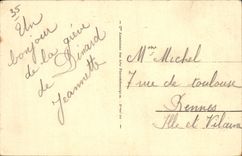 35
Un
bonjour
de la grève
de Dinard
Jeannette
Mme Michel
7 rue de toulouse
Rennes
Ille et Vilaine